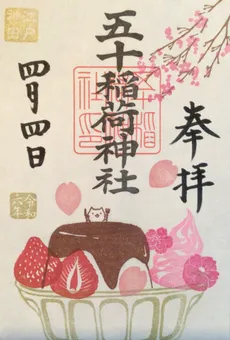 奉拝
五十稲荷神社
四月四日
令和
六年